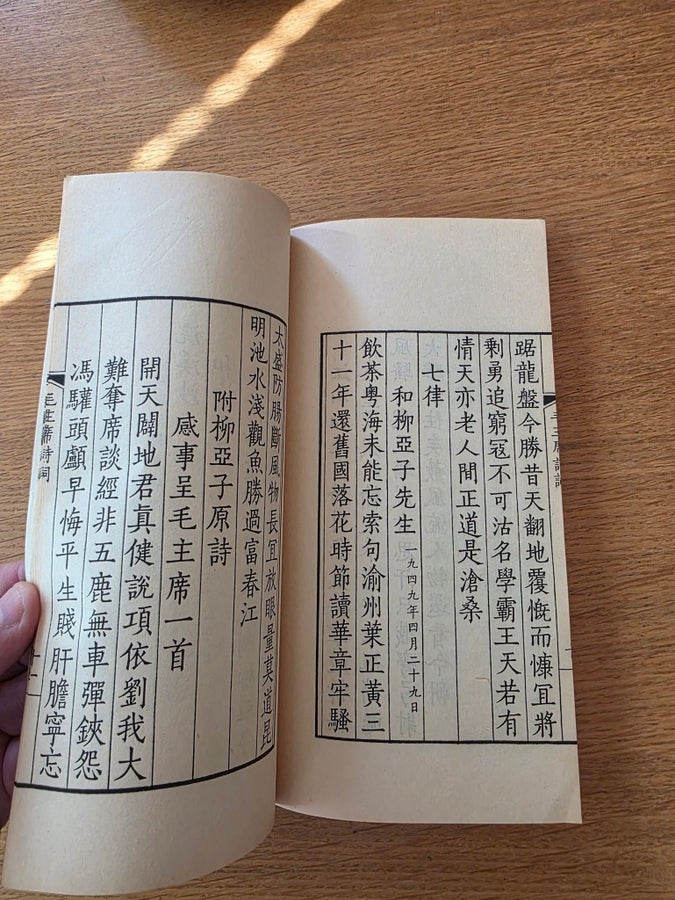 踞龍盤今勝昔天翻地覆慨而慷宜將
剩勇追窮寇不可沽名學霸王天若有
情天亦老人間正道是滄桑
七律
和柳亞子先生 一九四九年四月二十九日
飲茶粤海未能忘索句渝州葉正黄三
十一年還舊國落花時節讀華章牢騷
太盛防腸斷風物長宜放眼量莫道昆
明池水淺觀魚勝過富春江
附柳亞子原詩
感事呈毛主席一首
開天闢地君真健說項依劉我大
難奪席談經非五鹿無車彈鋏怨
馮驩頭顱早悔平生賤肝膽寧忘
毛主席詩詞